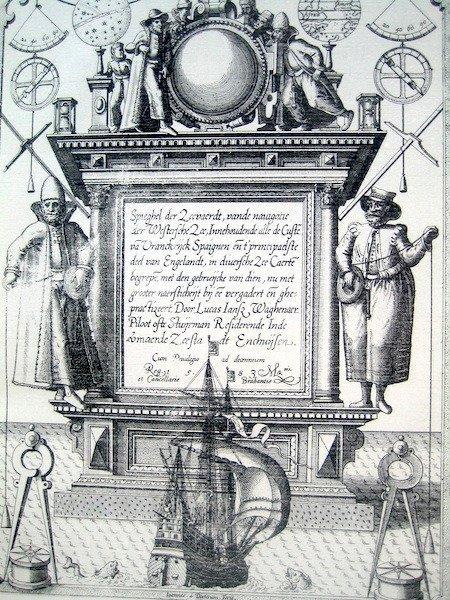 Spieghel der Zeevaerdt, vande navigatie
der Westersche Zee, Innehoudende alle de Custē
vā Vranckrijck Spaignen eñ t'principaelste
deel van Engelandt, in diversche Zee Caertē
begrepē, met den gebruijcke van dien, nu met
grooter naersticheijt bij ee vergadert eñ ghe
practizeert, Door Lucas Iansz Waghenaer
Piloot ofte Stuijrman Residerende Inde
vermaerde Zeestadt Enchuijsen.
Cum Privilegio ad decennium
Reg. 15 83 Ma.tis
et Cancellarie Brabantie
Ioannes a Doetecum fecit